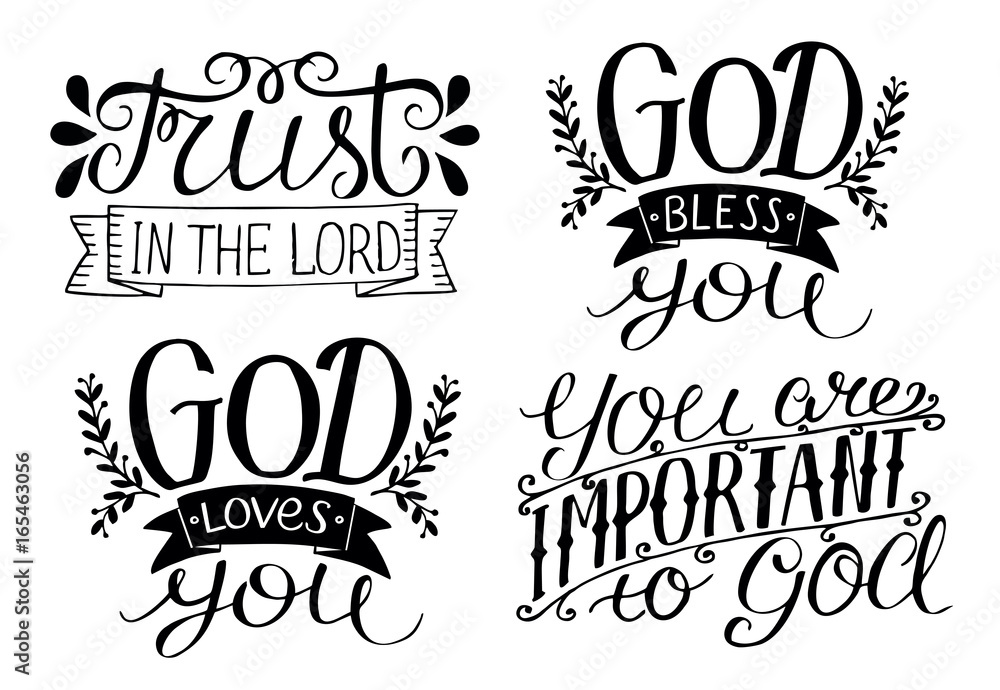 Trust
IN THE LORD
GOD
BLESS
you
GOD
LOVES
you
You are
IMPORTANT
to GOd
Adobe Stock | #165463056